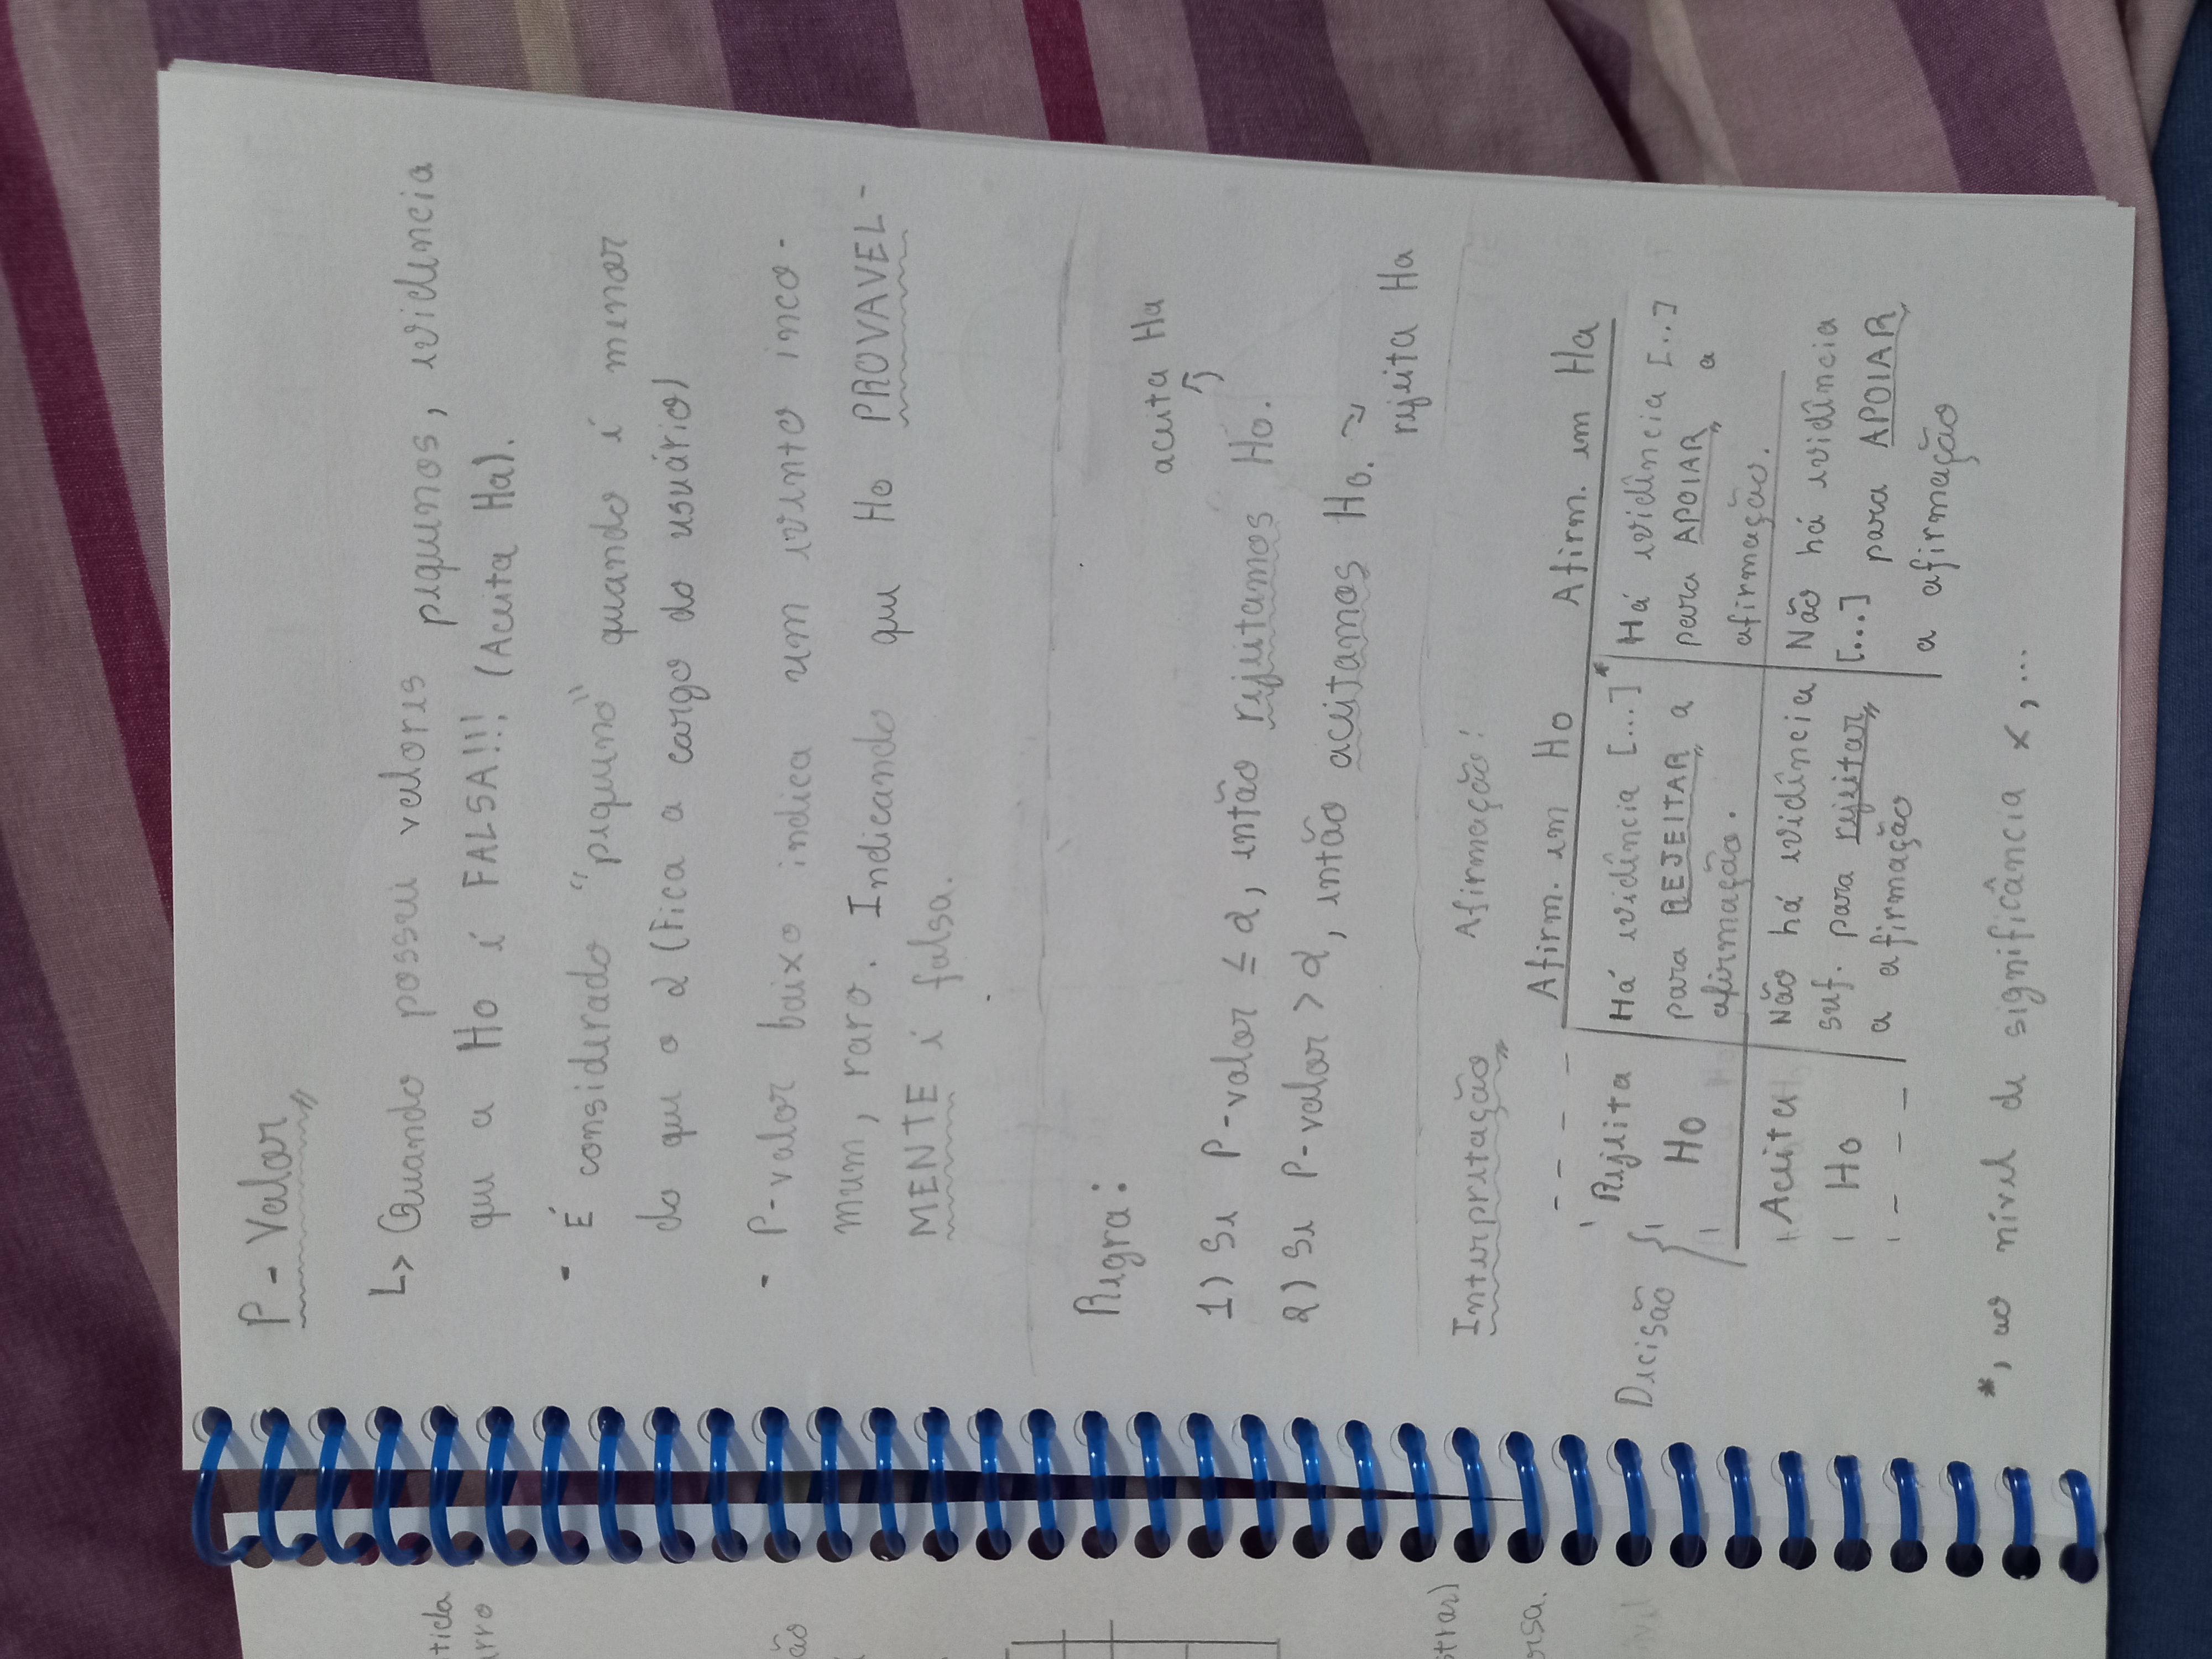 tida
arro
ão
strar)
orsa.
P-Valor
↳ Quando possui valores pequenos, evidencia
que a Ho é FALSA!!! (Aceita Ha).
- É considerado "pequeno" quando é menor
do que o α (Fica a cargo do usuário)
- P-valor baixo indica um evento inco-
mum, raro. Indicando que Ho PROVAVEL-
MENTE é falsa.
Regra:
aceita Ha
1) Se P-valor ≤ α, então rejeitamos Ho.
2) Se P-valor > α, então aceitamos Ho.
rejeita Ha
Interpretação Afirmação:
Afirm. em Ho Afirm. em Ha
Decisão
Rejeita
Ho
Há evidência [...]*
para REJEITAR a
afirmação.
Há evidência [..]
para APOIAR a
afirmação.
Aceita
Ho
Não há evidência
suf. para rejeitar
a afirmação
Não há evidência
[...] para APOIAR
a afirmação
*, ao nível de significância x, ...